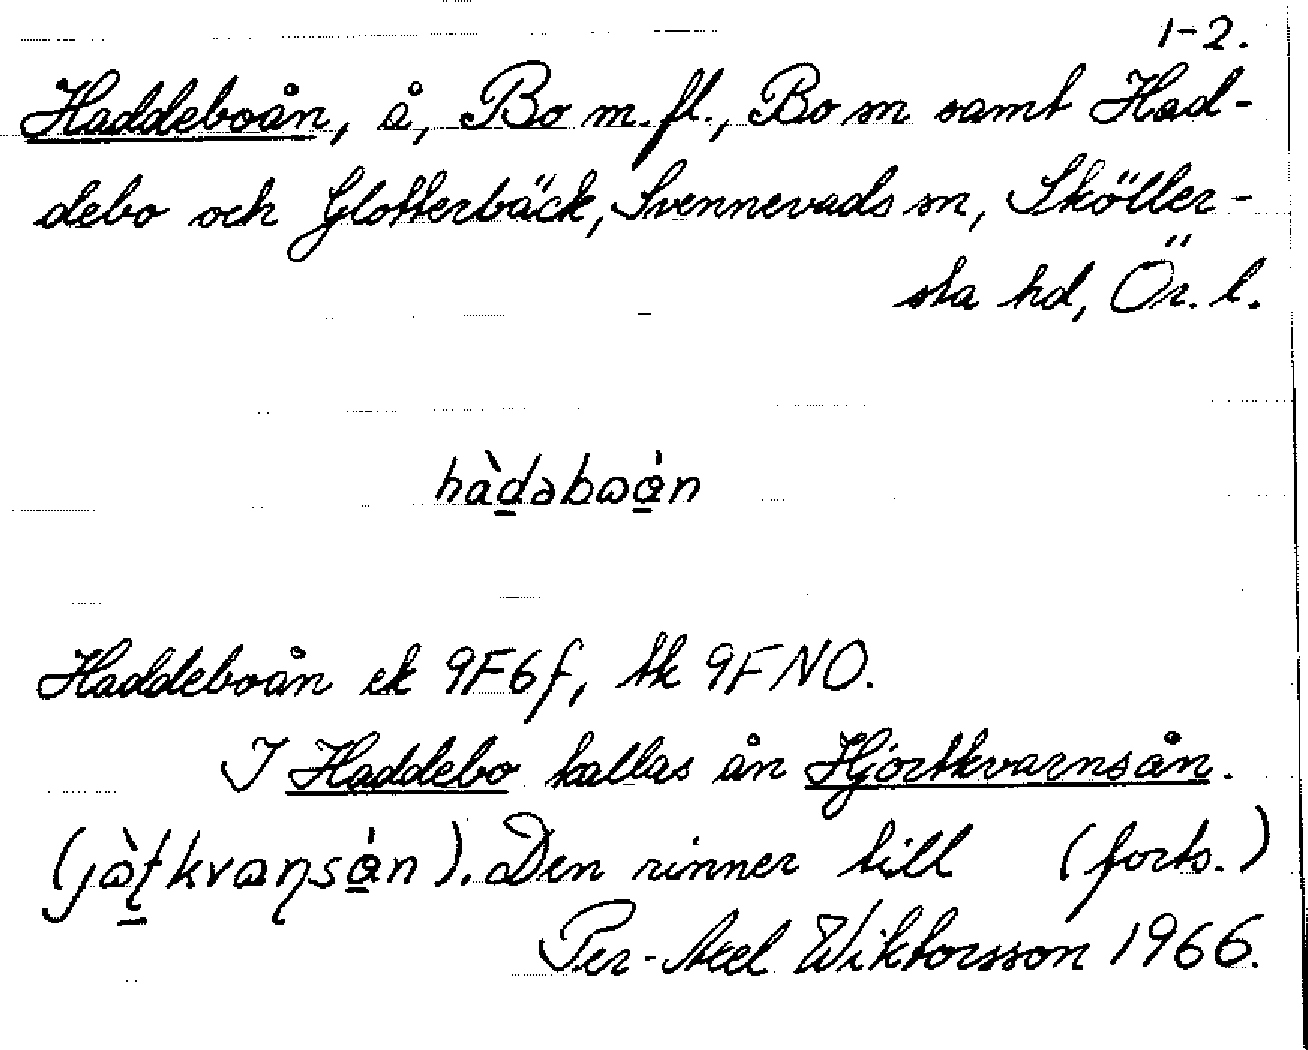 1-2.
Haddeboån, å, Bo m.fl., Bo sn samt Had-
debo och Glotterbäck, Svennevads sn, Sköller-
sta hd, Ör. l.
hàdəboån
Haddeboån ek 9F6f, tk 9F NO.
I Haddebo kallas ån Hjortkvarnsån.
(jàʈkvaɳsån). Den rinner till (forts.)
Per-Axel Wiktorsson 1966.